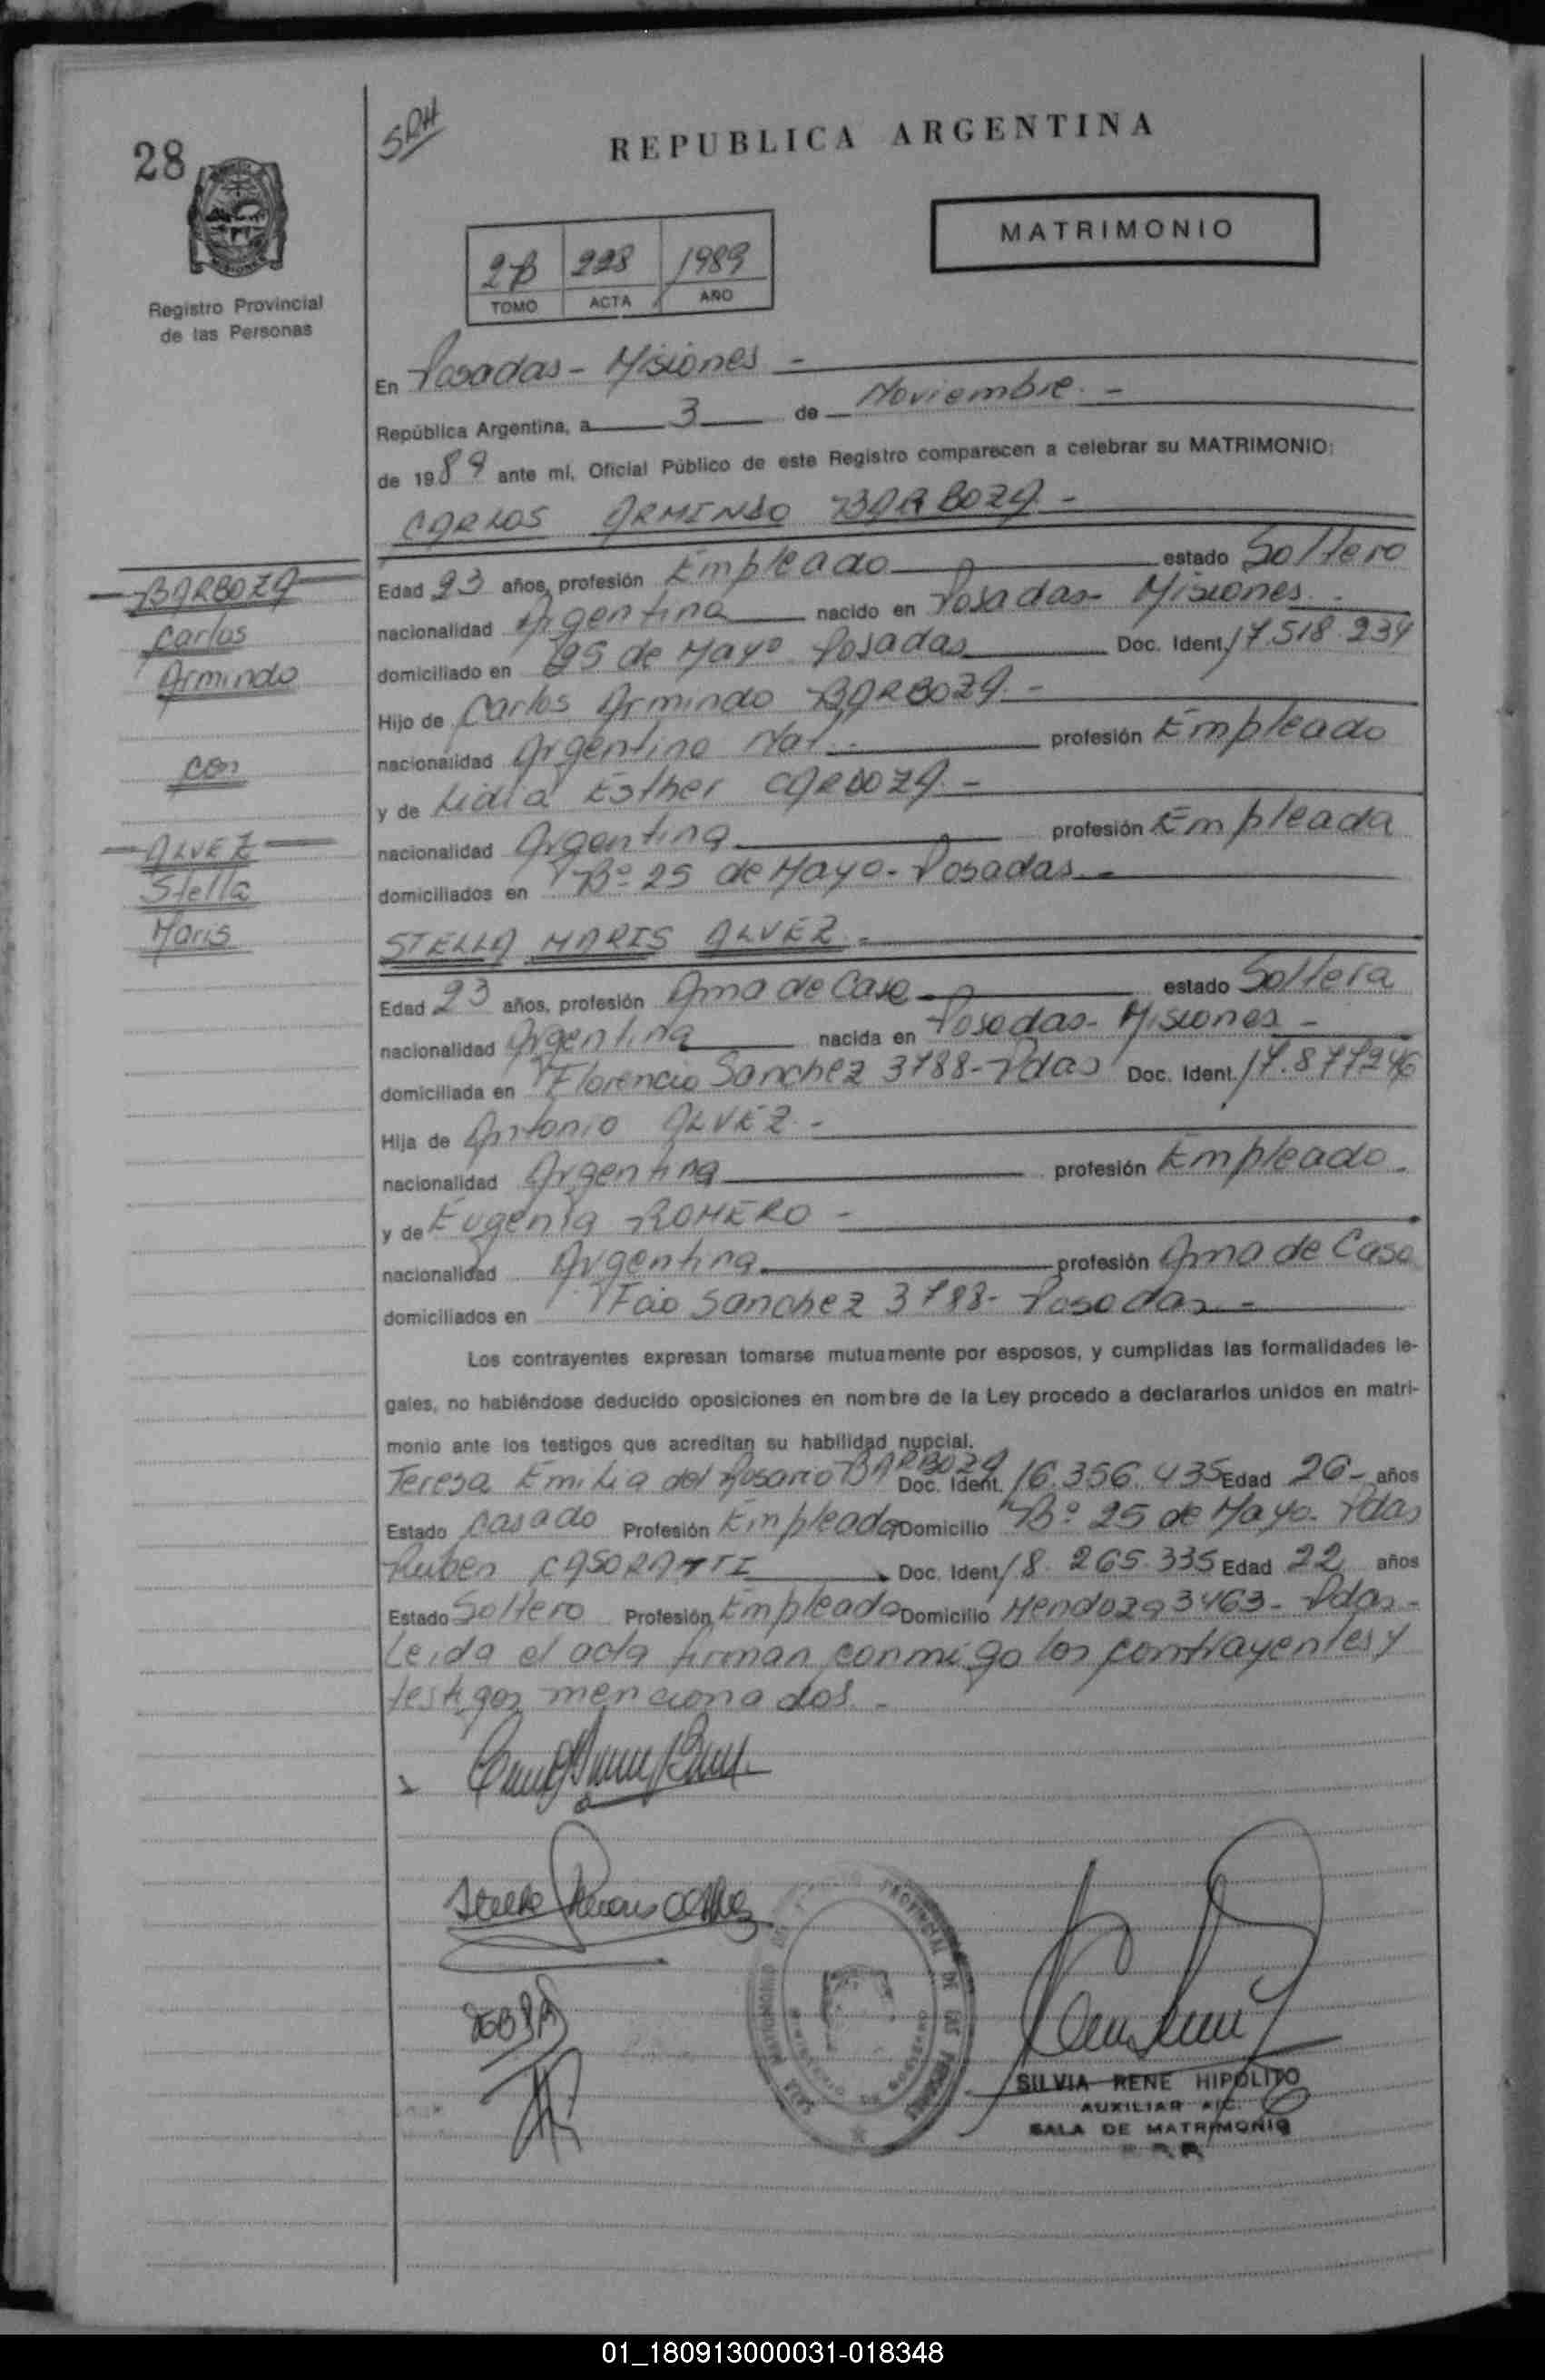 28
SRH
REPUBLICA ARGENTINA
MATRIMONIO
2B 228 1989
TOMO ACTA AÑO
Registro Provincial
de las Personas
En Posadas - Misiones -
República Argentina, a 3 de Noviembre. -
de 1989 ante mí, Oficial Público de este Registro comparecen a celebrar su MATRIMONIO:
CARLOS ARMINDO BARBOZA. -
BARBOZA
Carlos
Armindo
con
ALVEZ
Stella
Maris
Edad 23 años, profesión Empleado estado Soltero
nacionalidad Argentina nacido en Posadas - Misiones. -
domiciliado en 25 de Mayo Posadas Doc. Ident. 17.518.234
Hijo de Carlos Armindo BARBOZA. -
nacionalidad Argentino Nat. - profesión Empleado
y de Lidia Esther CARDOZA. -
nacionalidad Argentina profesión Empleada
domiciliados en Bº 25 de Mayo - Posadas -
STELLA MARIS ALVEZ. -
Edad 23 años, profesión Ama de Casa estado Soltera
nacionalidad Argentina nacida en Posadas - Misiones -
domiciliada en Florencio Sanchez 3788 - Pdas Doc. Ident. 17.877246
Hija de Antonio ALVEZ. -
nacionalidad Argentina profesión Empleado.
y de Eugenia ROMERO -
nacionalidad Argentina profesión Ama de Casa
domiciliados en Fcio Sanchez 3788 - Posadas -
Los contrayentes expresan tomarse mutuamente por esposos, y cumplidas las formalidades le-
gales, no habiéndose deducido oposiciones en nombre de la Ley procedo a declararlos unidos en matri-
monio ante los testigos que acreditan su habilidad nupcial.
Teresa Emilia del Rosario BARBOZA Doc. Ident. 16.356.435 Edad 26 - años
Estado casado Profesión Empleada Domicilio Bº 25 de Mayo - Pdas
Ruben CASORATTI Doc. Ident 18.265.335 Edad 22 años
Estado Soltero Profesión Empleado Domicilio Mendoza 3463 - Pdas -
Leida el acta firman conmigo los contrayentes y
testigos mencionados. -
SILVIA RENE HIPOLITO
AUXILIAR
SALA DE MATRIMONIO
01_180913000031-018348